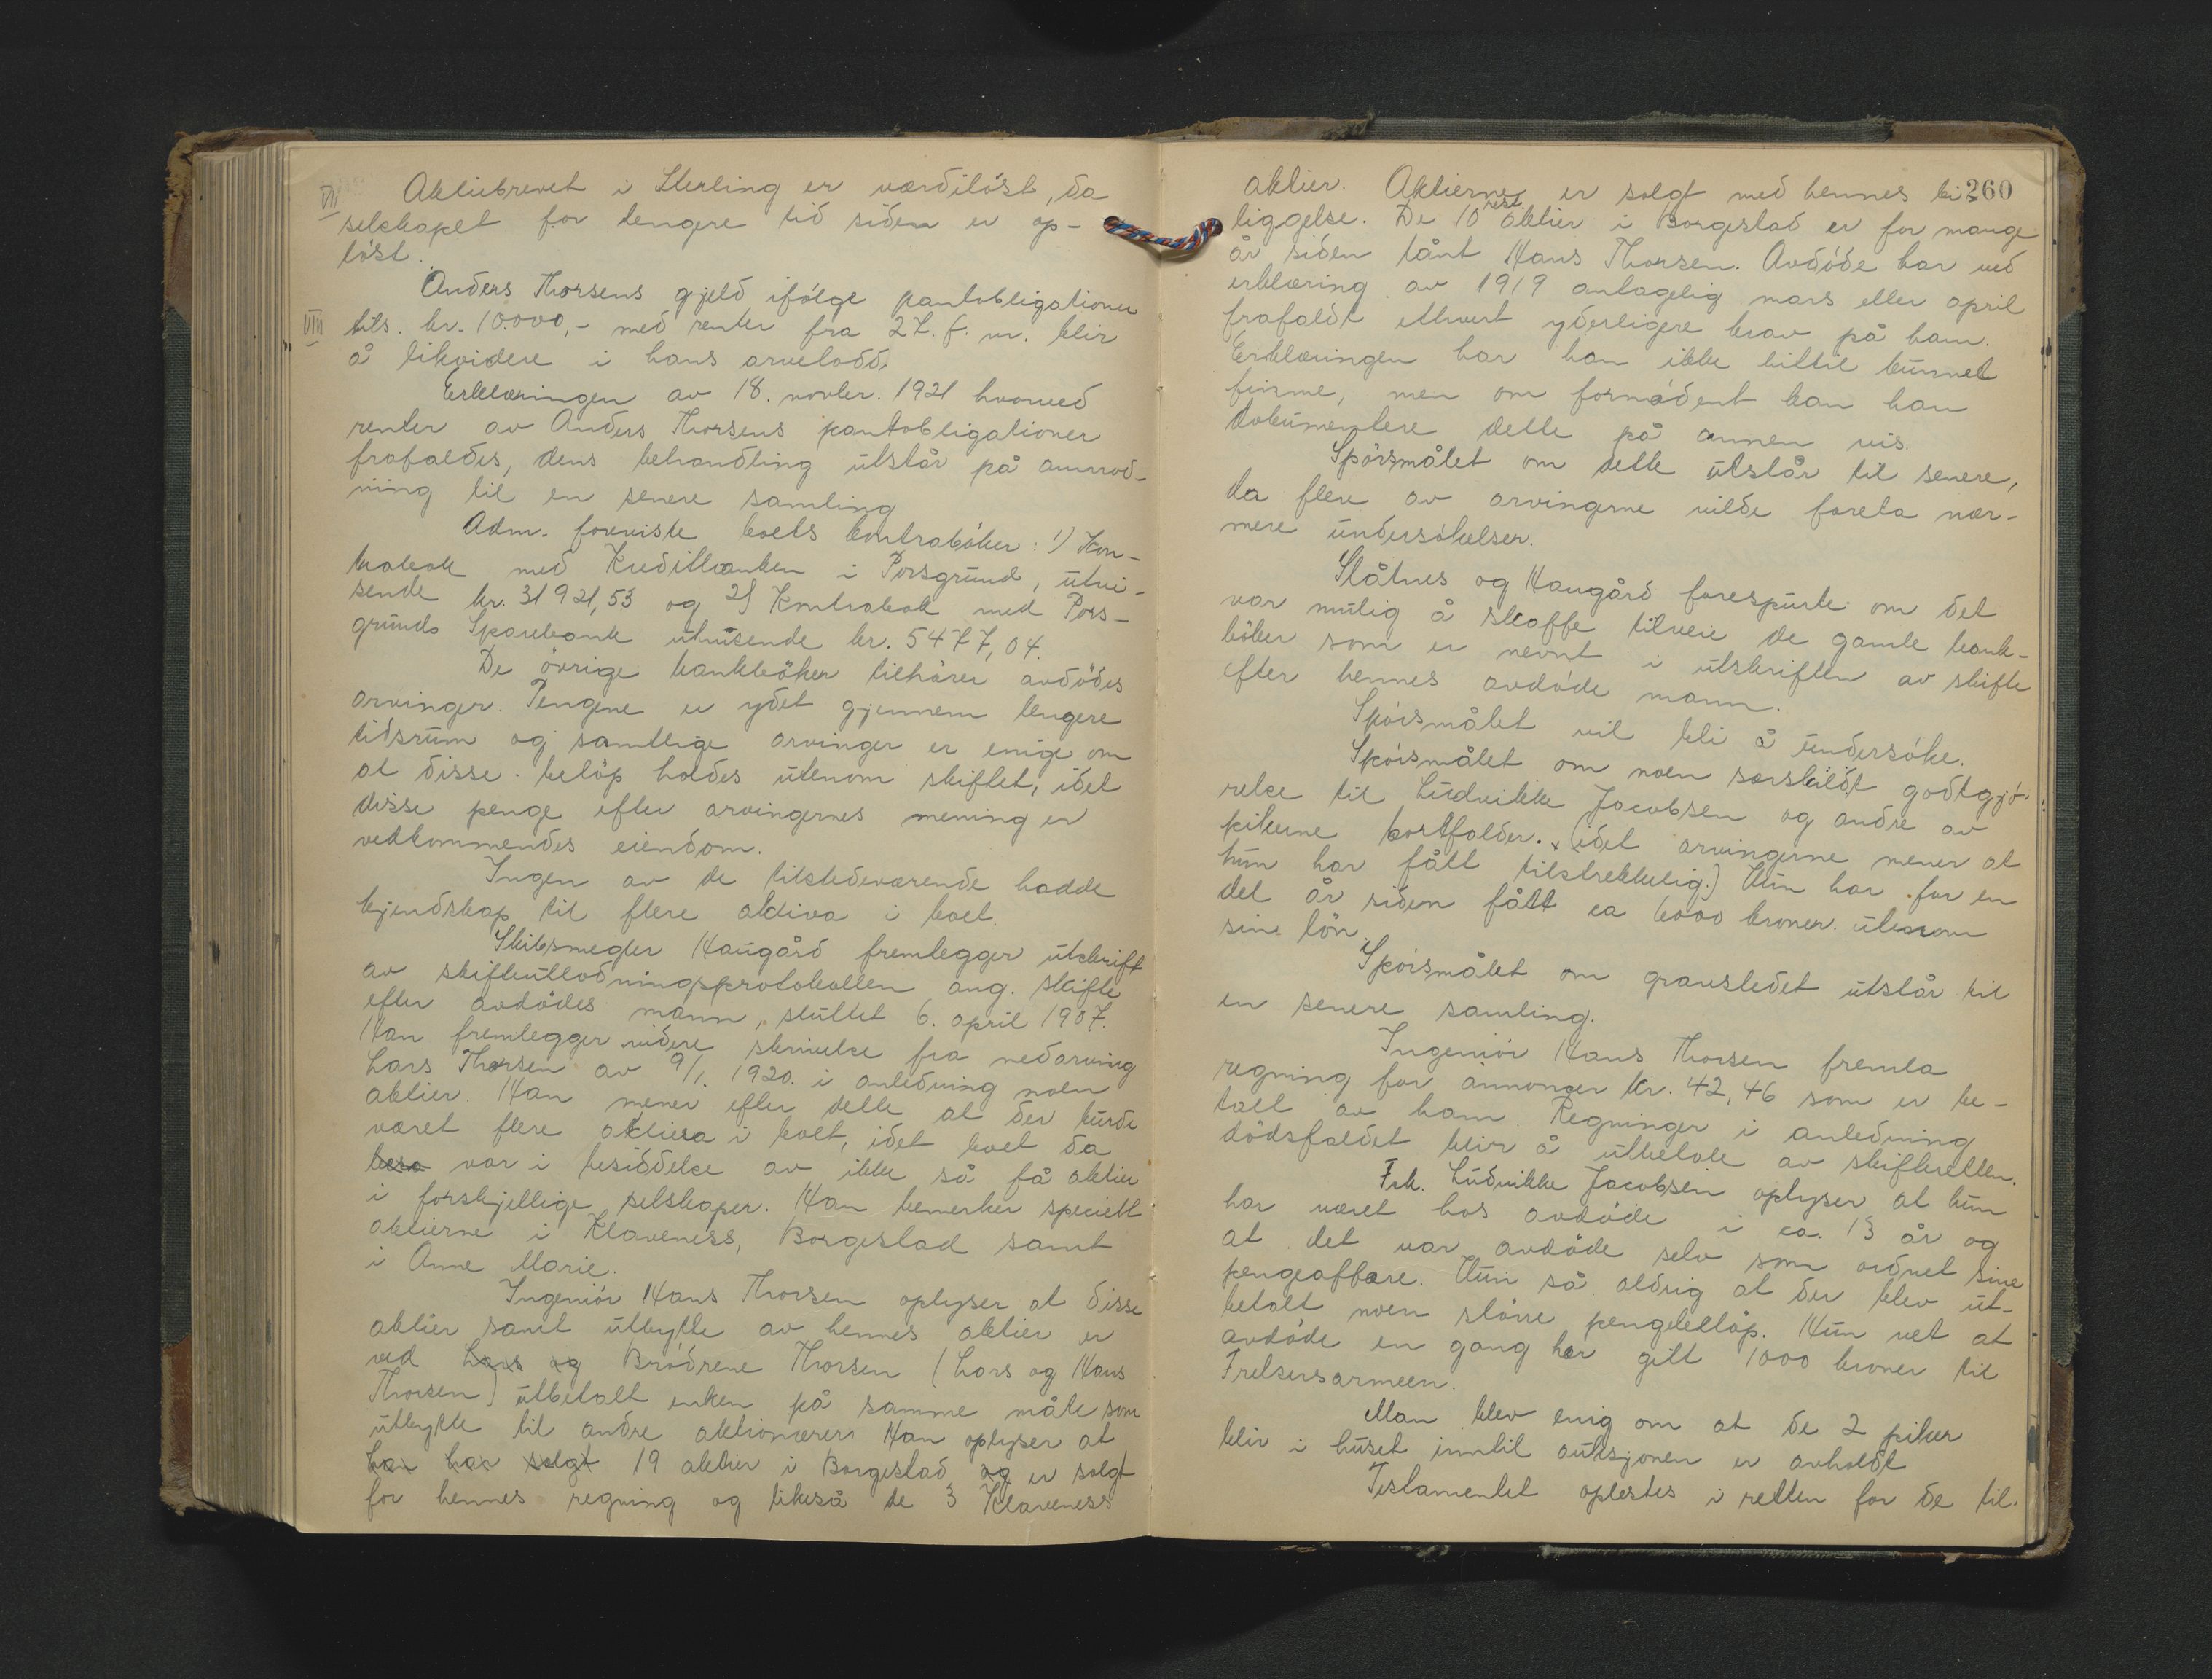 VII Aktiebrevet i Sterling er værdiløst, da
selskapet for lengere tid siden er op-
løst.
Anders Thorsens gjeld ifølge pantobligationer
VIII tils. kr. 10.000,- med renter fra 27. f. m. blir
å likvidere i hans arvelodd.
Erklæringen av 18. novbr. 1921 hvorved
renter av Anders Thorsens pantobligationer
frafaldes, dens behandling utstår på anmod-
ning til en senere samling
Adm. foreviste boets kontrabøker: 1) Kon-
trabok med Kreditbanken i Porsgrund, utvi-
sende kr. 31921,53 og 2) Kontrabok med Pors-
grunds Sparebank utvisende kr. 5477,04.
De øvrige bankbøker tilhører avdødes
arvinger. Pengene er ydet gjennem lengere
tidsrum og samtlige arvinger er enige om
at disse beløp holdes utenom skiftet, idet
disse penge efter arvingernes mening er
vedkommendes eiendom.
Ingen av de tilstedeværende hadde
kjendskap til flere aktiva i boet.
Skibsmegler Haugård fremlegger utskrift
av skifteutlodningsprotokollen ang. skifte
efter avdødes mann, sluttet 6. april 1907.
Han fremlegger videre skrivelse fra medarving
Lars Thorsen av 9/1. 1920. i anledning noen
aktier. Han mener efter dette at der burde
været flere aktiva i boet, idet boet da
besa var i besiddelse av ikke så få aktier
i forskjellige selskaper. Han bemerker specielt
aktierne i Klaveness, Borgestad samt
i Anne Marie.
Ingeniør Hans Thorsen oplyser at disse
aktier samt utbytte av hennes aktier er
ved Lars og Brødrene Thorsen (Lars og Hans
Thorsen) utbetalt enken på samme måte som
utbytte til andre aktionærer. Han oplyser at
han har solgt 19 aktier i Borgestad og er solgt
for hennes regning og likeså de 3 Klaveness
260
aktier. Aktierne er solgt med hennes bi-
liggelse. De 10 rest. aktier i Borgestad er for mange
år siden lånt Hans Thorsen. Avdøde har ved
erklæring av 1919 antagelig mars eller april
frafaldt ethvert yderligere krav på ham.
Erklæringen har han ikke hittil kunnet
finne, men om fornødent kan han
dokumentere dette på annen vis.
Spørsmålet om dette utstår til senere,
da flere av arvingerne vilde foreta nær-
mere undersøkelser.
Slåtnes og Haugård forespurte om det
var mulig å skaffe tilveie de gamle bank-
bøker som er nevnt i utskriften av skifte
efter hennes avdøde mann.
Spørsmålet vil bli å undersøke.
Spørsmålet om noen særskildt godtgjø-
relse til Ludvikke Jacobsen og andre av
pikerne bortfalder. (idet arvingerne mener at
hun har fått tilstrekkelig.) Hun har for en
del år siden fått ca 6000 kroner utenom
sin lön.
Spørsmålet om gravstedet utstår til
en senere samling.
Ingeniør Hans Thorsen fremla
regning for annonser kr. 42,46 som er be-
talt av ham. Regninger i anledning
dödsfaldet blir å utbetale av skifteretten.
Frk. Ludvikke Jacobsen oplyser at hun
har været hos avdøde i ca. 13 år og
at det var avdøde selv som ordnet sine
pengeaffære. Hun så aldrig at der blev ut-
betalt noen större pengebeløp. Hun vet at
avdøde en gang har gitt 1000 kroner til
Frelsersarmeen.
Man blev enig om at de 2 piker
blir i huset inntil auksjonen er avholdt
Testamentet oplestes i retten for de til-